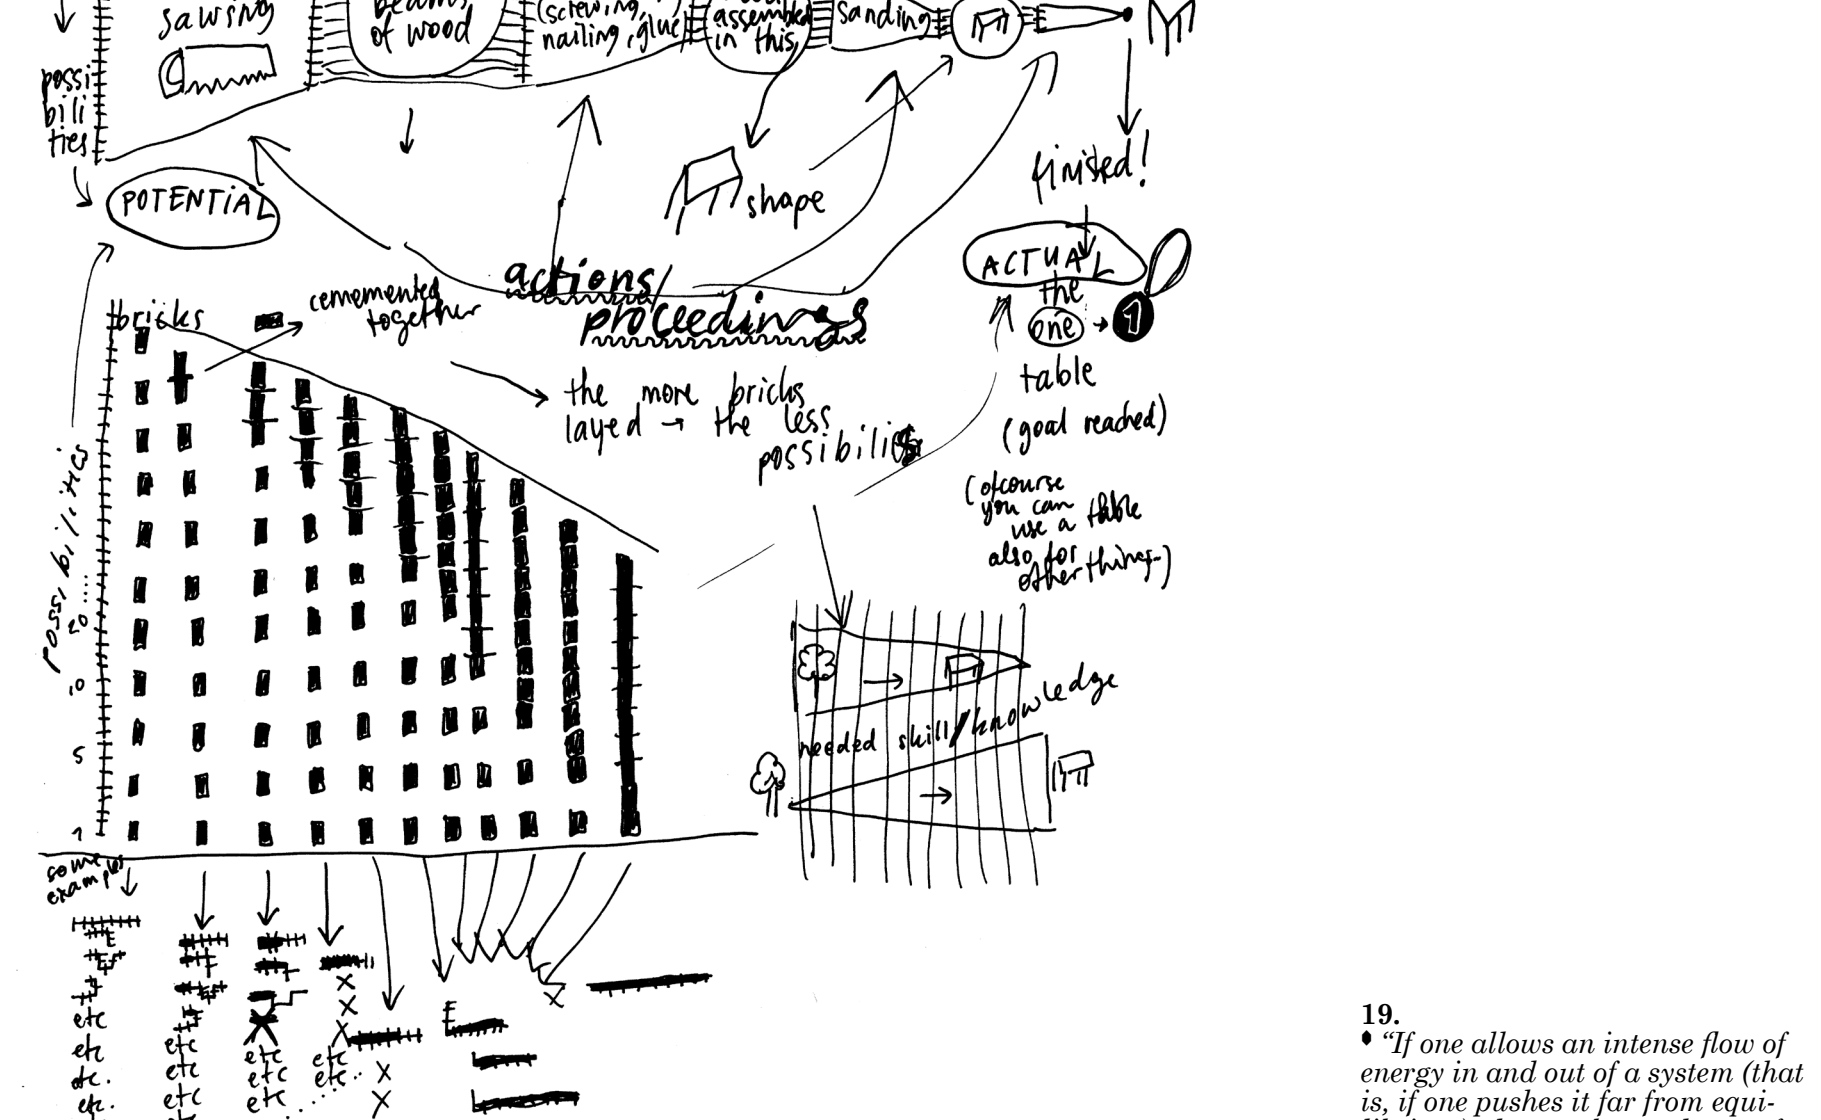 sawing
beams
of wood
(screwing,
nailing, glue)
assembled
in this
sanding
possi
bili
ties
POTENTIAL
shape
finished!
ACTUAL
the
one → 1
table
(goal reached)
(ofcourse
you can
use a table
also for
other things..)
actions/
proceedings
bricks
cememented
together
the more bricks
layed → the less
possibilities
possibilities
....
20
10
5
1
needed skill/knowledge
some
examples
etc
etc
etc.
etc.
etc
etc
etc
etc
etc
etc
etc
etc
etc..
X
X
X
X
X
X
19.
“If one allows an intense flow of
energy in and out of a system (that
is, if one pushes it far from equi-